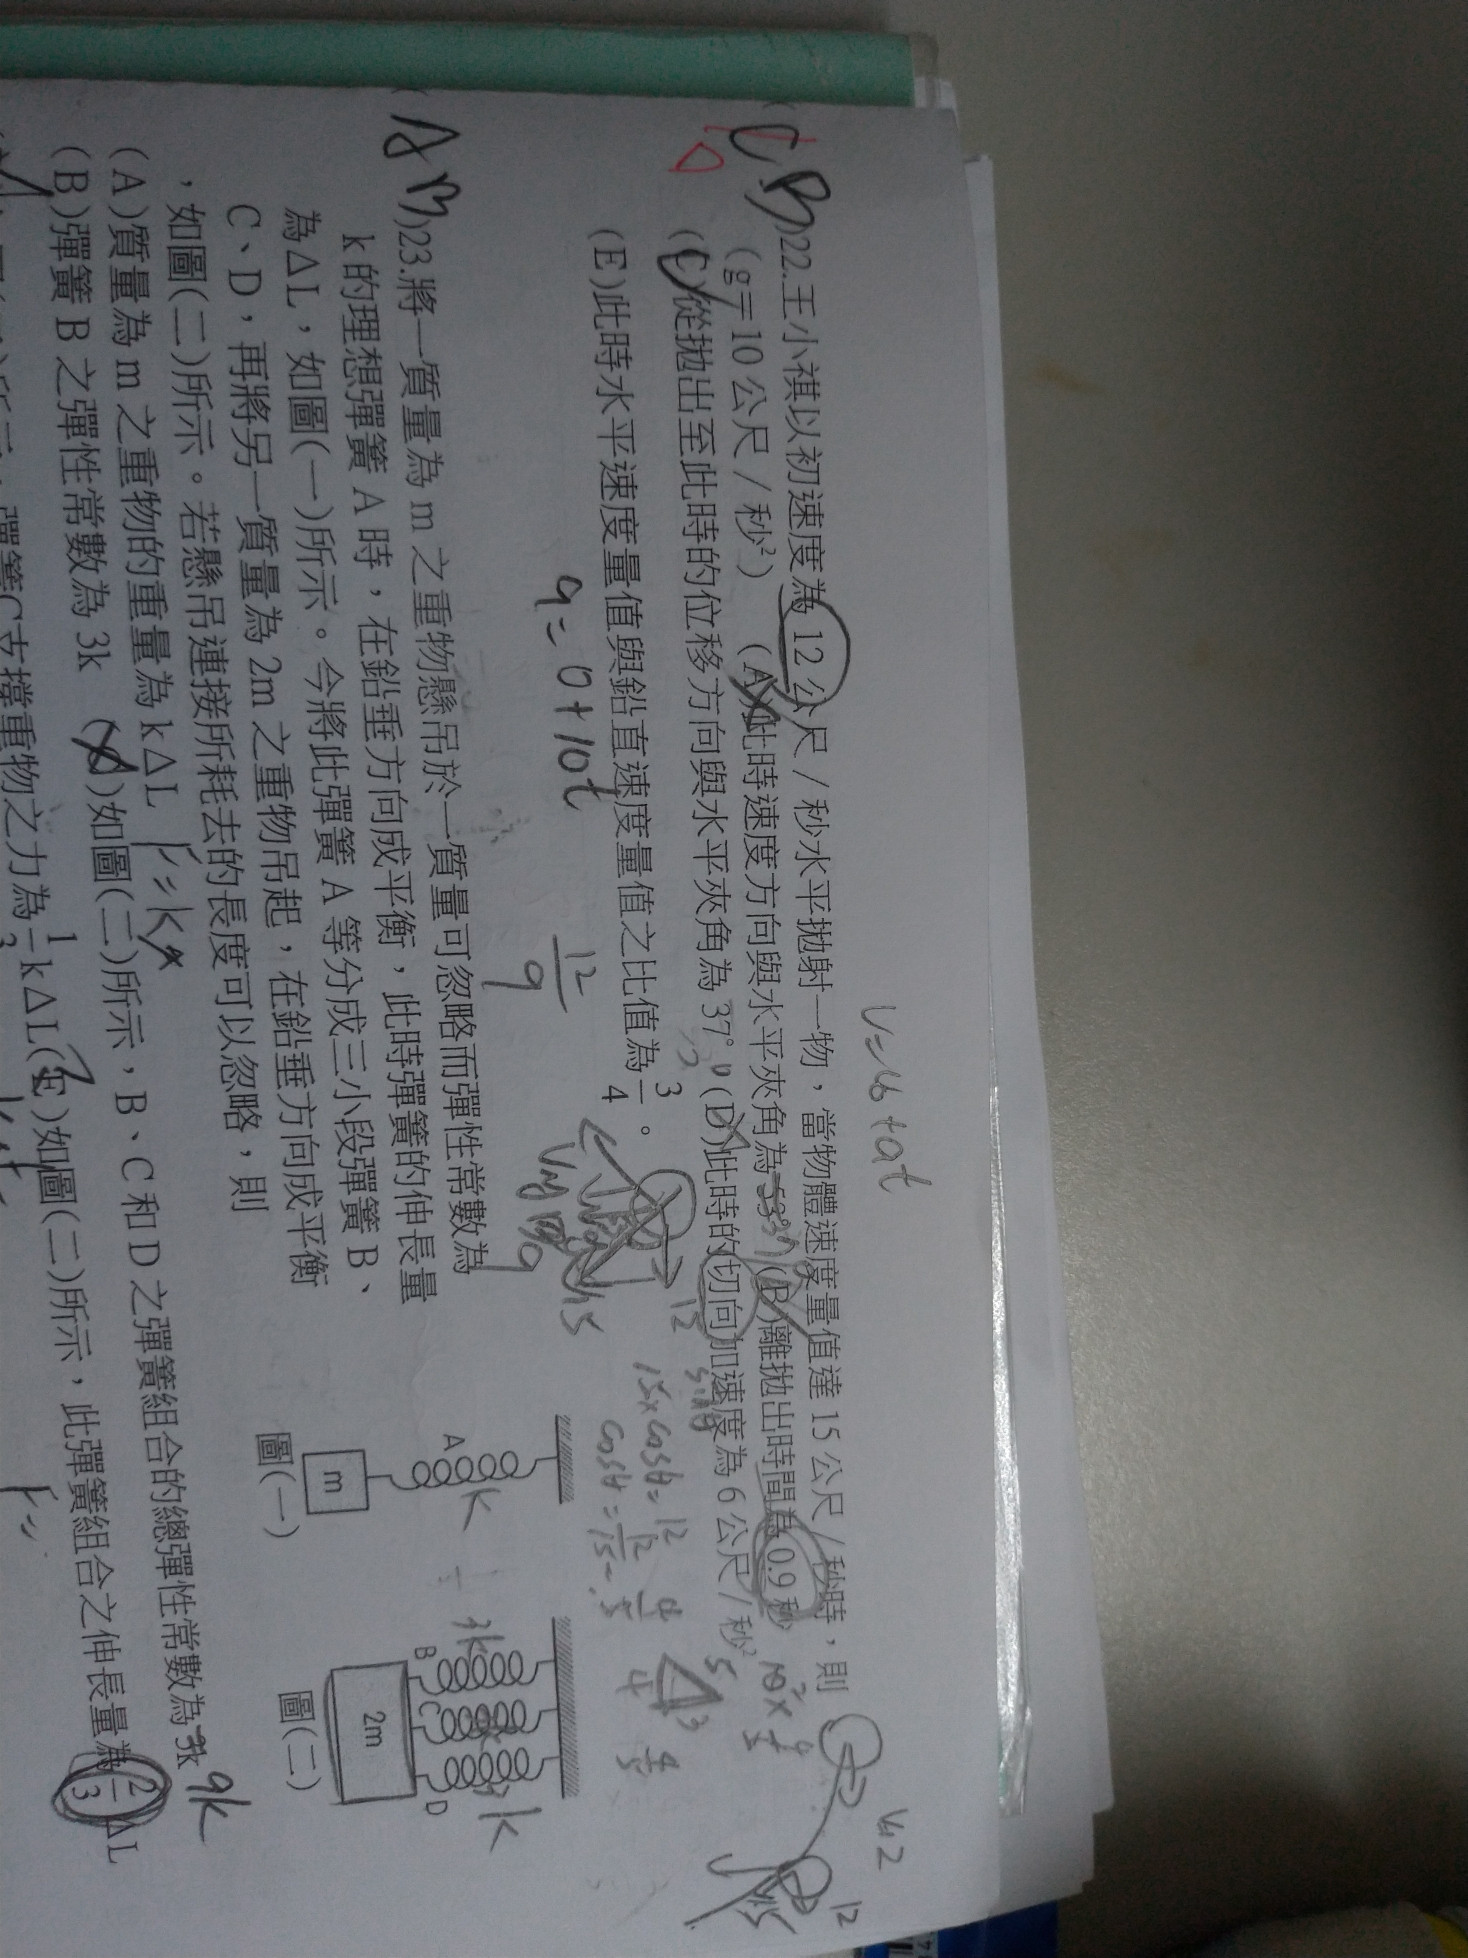 V=V0+at
CB)22.王小祺以初速度為12公尺/秒水平拋射一物,當物體速度量值達15公尺/秒時,則
(g=10公尺/秒²) (A)此時速度方向與水平夾角為53° (B)離拋出時間為0.9秒
(C)從拋出至此時的位移方向與水平夾角為37° (D)此時的切向加速度為6公尺/秒²
(E)此時水平速度量值與鉛直速度量值之比值為3/4。
D
9=0+10t
12/9
12
15
Vy 9
15×cosθ=12
cosθ=12/15
4/5
5
3
4
12
15
AB)23.將一質量為m之重物懸吊於一質量可忽略而彈性常數為
k的理想彈簧A時,在鉛垂方向成平衡,此時彈簧的伸長量
為△L,如圖(一)所示。今將此彈簧A等分成三小段彈簧B、
C、D,再將另一質量為2m之重物吊起,在鉛垂方向成平衡
,如圖(二)所示。若懸吊連接所耗去的長度可以忽略,則
(A)質量為m之重物的重量為k△L
F=kx
(B)彈簧B之彈性常數為3k (C)如圖(二)所示,B、C和D之彈簧組合的總彈性常數為3k
9k
彈簧C支撐重物之力為1/3k△L(E)如圖(二)所示,此彈簧組合之伸長量為2/3△L
A
k
m
圖(一)
3k
B
C
D
k
2m
圖(二)
F=